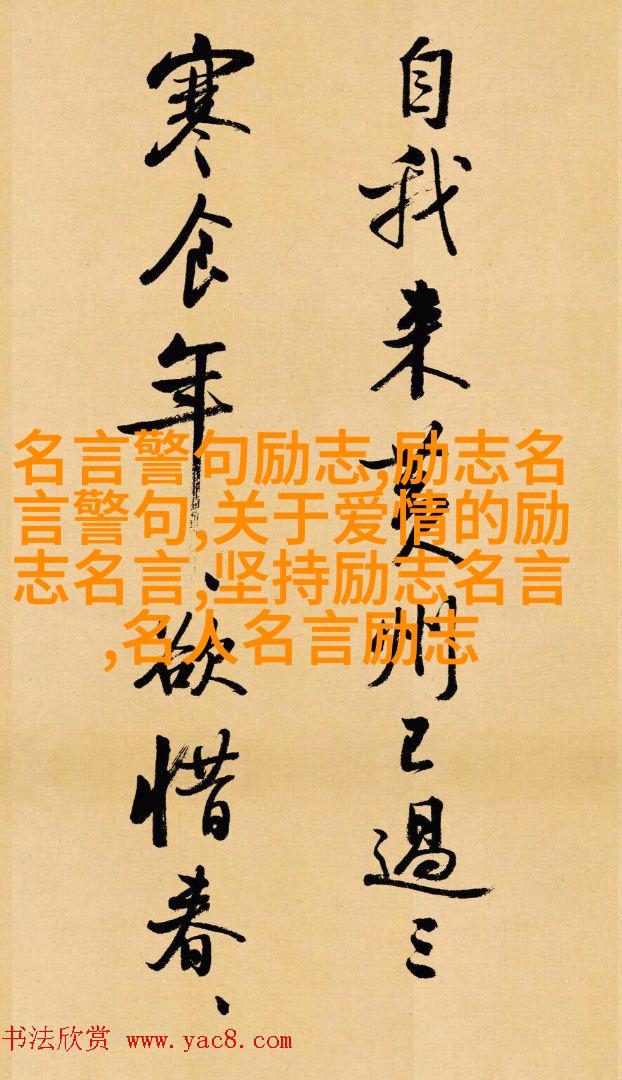 自我来黄州已過三
寒食年、欲惜春、
名言警句励志,励志名
言警句,关于爱情的励
志名言,坚持励志名言
,名人名言励志
书法欣赏 www.yac8.com